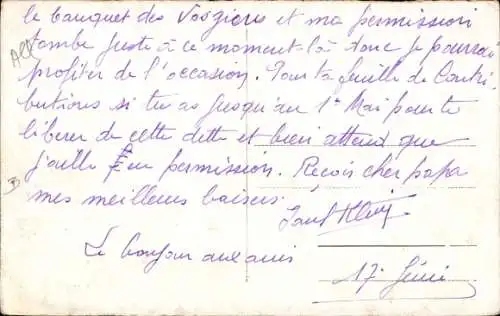 le banquet des Vosgiens et ma permission
tombe juste à ce moment là donc je pourrai
profiter de l'occasion. Pour ta feuille de Contri
butions si tu as jusqu'au 1er Mai pour te
libérer de cette dette et bien attend que
j'aille en permission. Reçois cher papa
mes meilleurs baisers.
Le bonjour aux amis
17e Génie